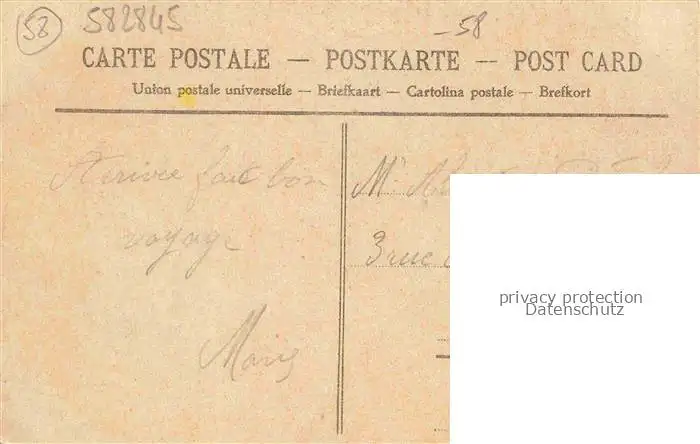 58 582845
-58
CARTE POSTALE — POSTKARTE — POST CARD
Union postale universelle — Briefkaart — Cartolina postale — Brefkort
Arrivée fait bon
voyage
Mr
3 rue
privacy protection
Datenschutz